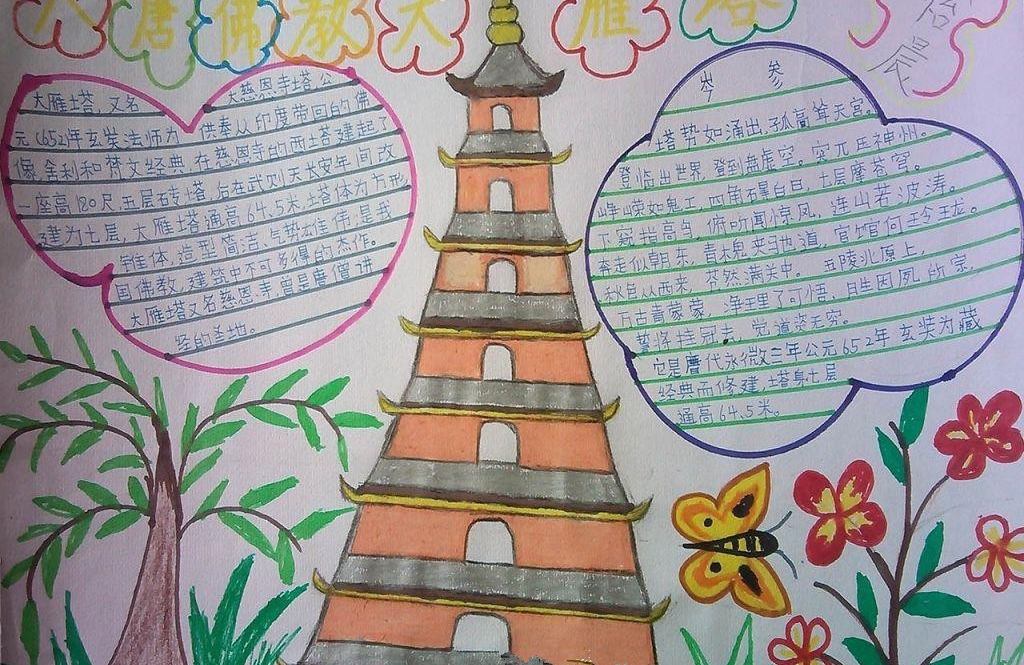 大唐佛教大雁塔
大雁塔,又名 大慈恩寺塔,公
元652年玄奘法师为 供奉从印度带回的佛
像,舍利和梵文经典,在慈恩寺的西塔建起了
一座高180尺,五层石砖塔,后在武则天长安年间改
建为七层,大雁塔通高64.5米,塔体为方形
锥体,造型简洁,气势雄伟,是我
国佛教,建筑中不可多得的杰作。
大雁塔又名慈恩寺,曾是唐僧讲
经的圣地。
岑参
塔势如涌出,孤高耸天宫。
登临出世界,登到盘虚空。突兀压神州。
峥嵘如鬼工,四角碍白日,七层摩苍穹。
下窥指高鸟,俯听闻惊风,连山若波涛。
奔走似朝东,青 夹驰道,宫馆何玲珑。
秋色从西来,苍然满关中。五陵北原上,
万古青蒙蒙,净理了可悟,
誓将挂冠去,觉道资无穷。
它是唐代永微三年公元652年玄奘为藏
经典而修建,塔身七层
通高64.5米。